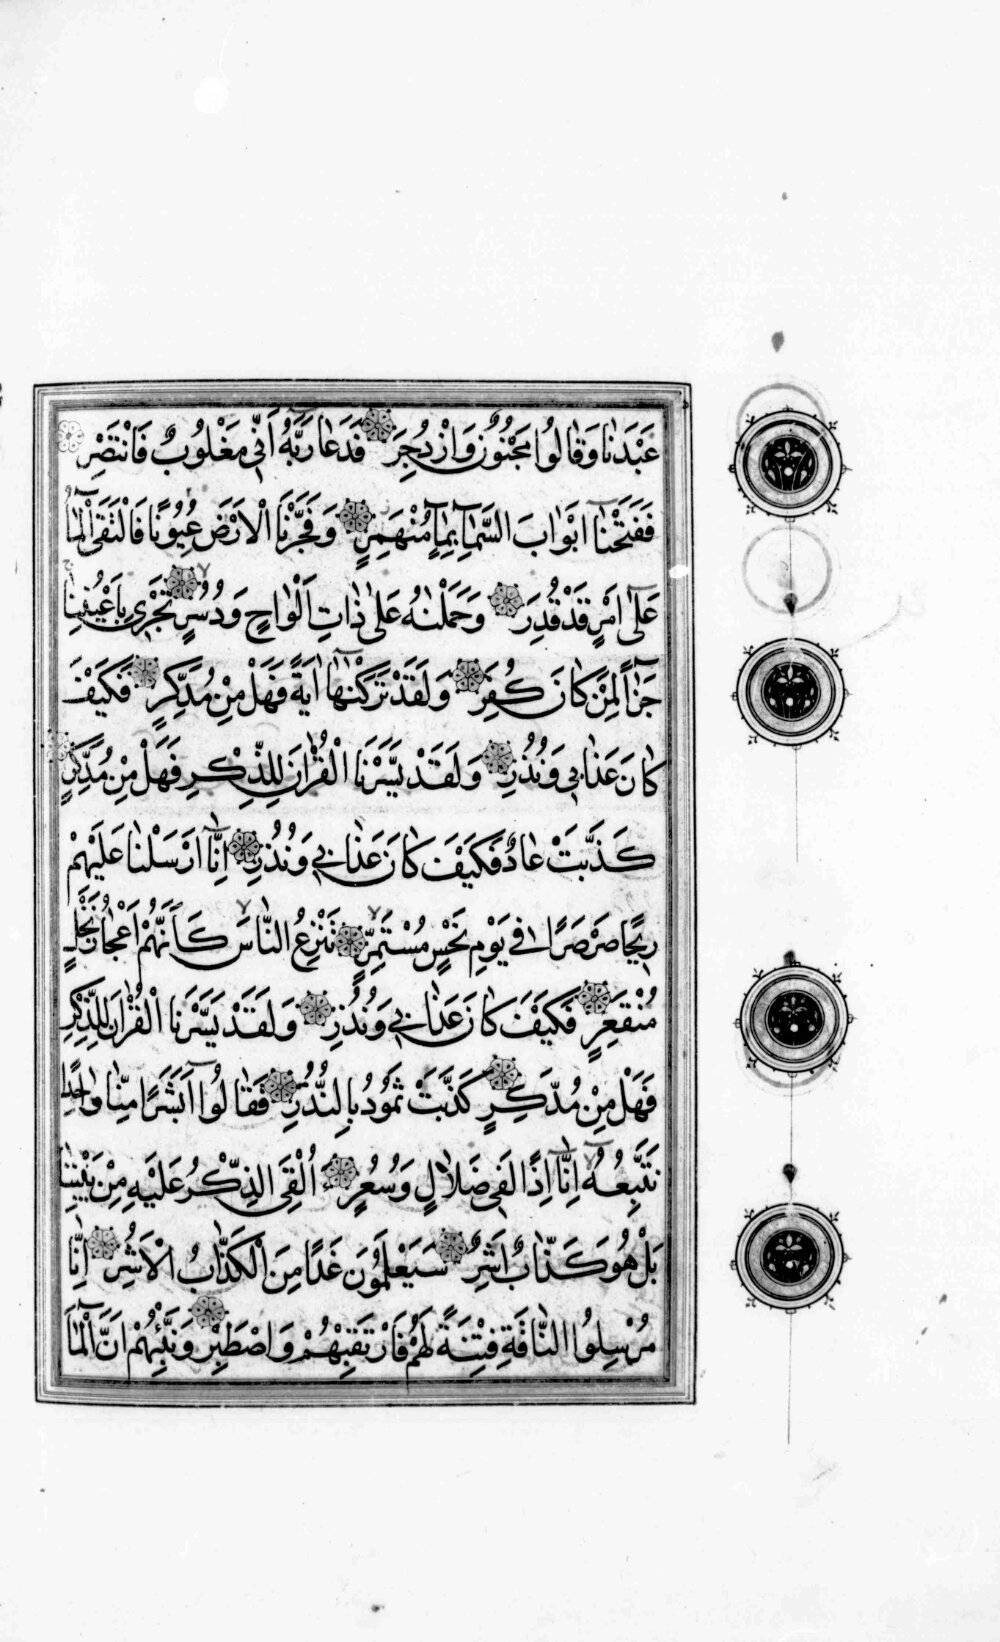 عَبْدَنَا وَقَالُوا مَجْنُونٌ وَازْدُجِرَ فَدَعَا رَبَّهُ أَنِّي مَغْلُوبٌ فَانْتَصِرْ
فَفَتَحْنَا أَبْوَابَ السَّمَاءِ بِمَاءٍ مُنْهَمِرٍ وَفَجَّرْنَا الْأَرْضَ عُيُونًا فَالْتَقَى الْمَاءُ
عَلَى أَمْرٍ قَدْ قُدِرَ وَحَمَلْنَاهُ عَلَى ذَاتِ أَلْوَاحٍ وَدُسُرٍ تَجْرِي بِأَعْيُنِنَا
جَزَاءً لِمَنْ كَانَ كُفِرَ وَلَقَدْ تَرَكْنَاهَا آيَةً فَهَلْ مِنْ مُدَّكِرٍ فَكَيْفَ
كَانَ عَذَابِي وَنُذُرِ وَلَقَدْ يَسَّرْنَا الْقُرْآنَ لِلذِّكْرِ فَهَلْ مِنْ مُدَّكِرٍ
كَذَّبَتْ عَادٌ فَكَيْفَ كَانَ عَذَابِي وَنُذُرِ إِنَّا أَرْسَلْنَا عَلَيْهِمْ
رِيحًا صَرْصَرًا فِي يَوْمِ نَحْسٍ مُسْتَمِرٍّ تَنْزِعُ النَّاسَ كَأَنَّهُمْ أَعْجَازُ نَخْلٍ
مُنْقَعِرٍ فَكَيْفَ كَانَ عَذَابِي وَنُذُرِ وَلَقَدْ يَسَّرْنَا الْقُرْآنَ لِلذِّكْرِ
فَهَلْ مِنْ مُدَّكِرٍ كَذَّبَتْ ثَمُودُ بِالنُّذُرِ فَقَالُوا أَبَشَرًا مِنَّا وَاحِدًا
نَتَّبِعُهُ إِنَّا إِذًا لَفِي ضَلَالٍ وَسُعُرٍ أَأُلْقِيَ الذِّكْرُ عَلَيْهِ مِنْ بَيْنِنَا
بَلْ هُوَ كَذَّابٌ أَشِرٌ سَيَعْلَمُونَ غَدًا مَنِ الْكَذَّابُ الْأَشِرُ إِنَّا
مُرْسِلُوا النَّاقَةِ فِتْنَةً لَهُمْ فَارْتَقِبْهُمْ وَاصْطَبِرْ وَنَبِّئْهُمْ أَنَّ الْمَاءَ